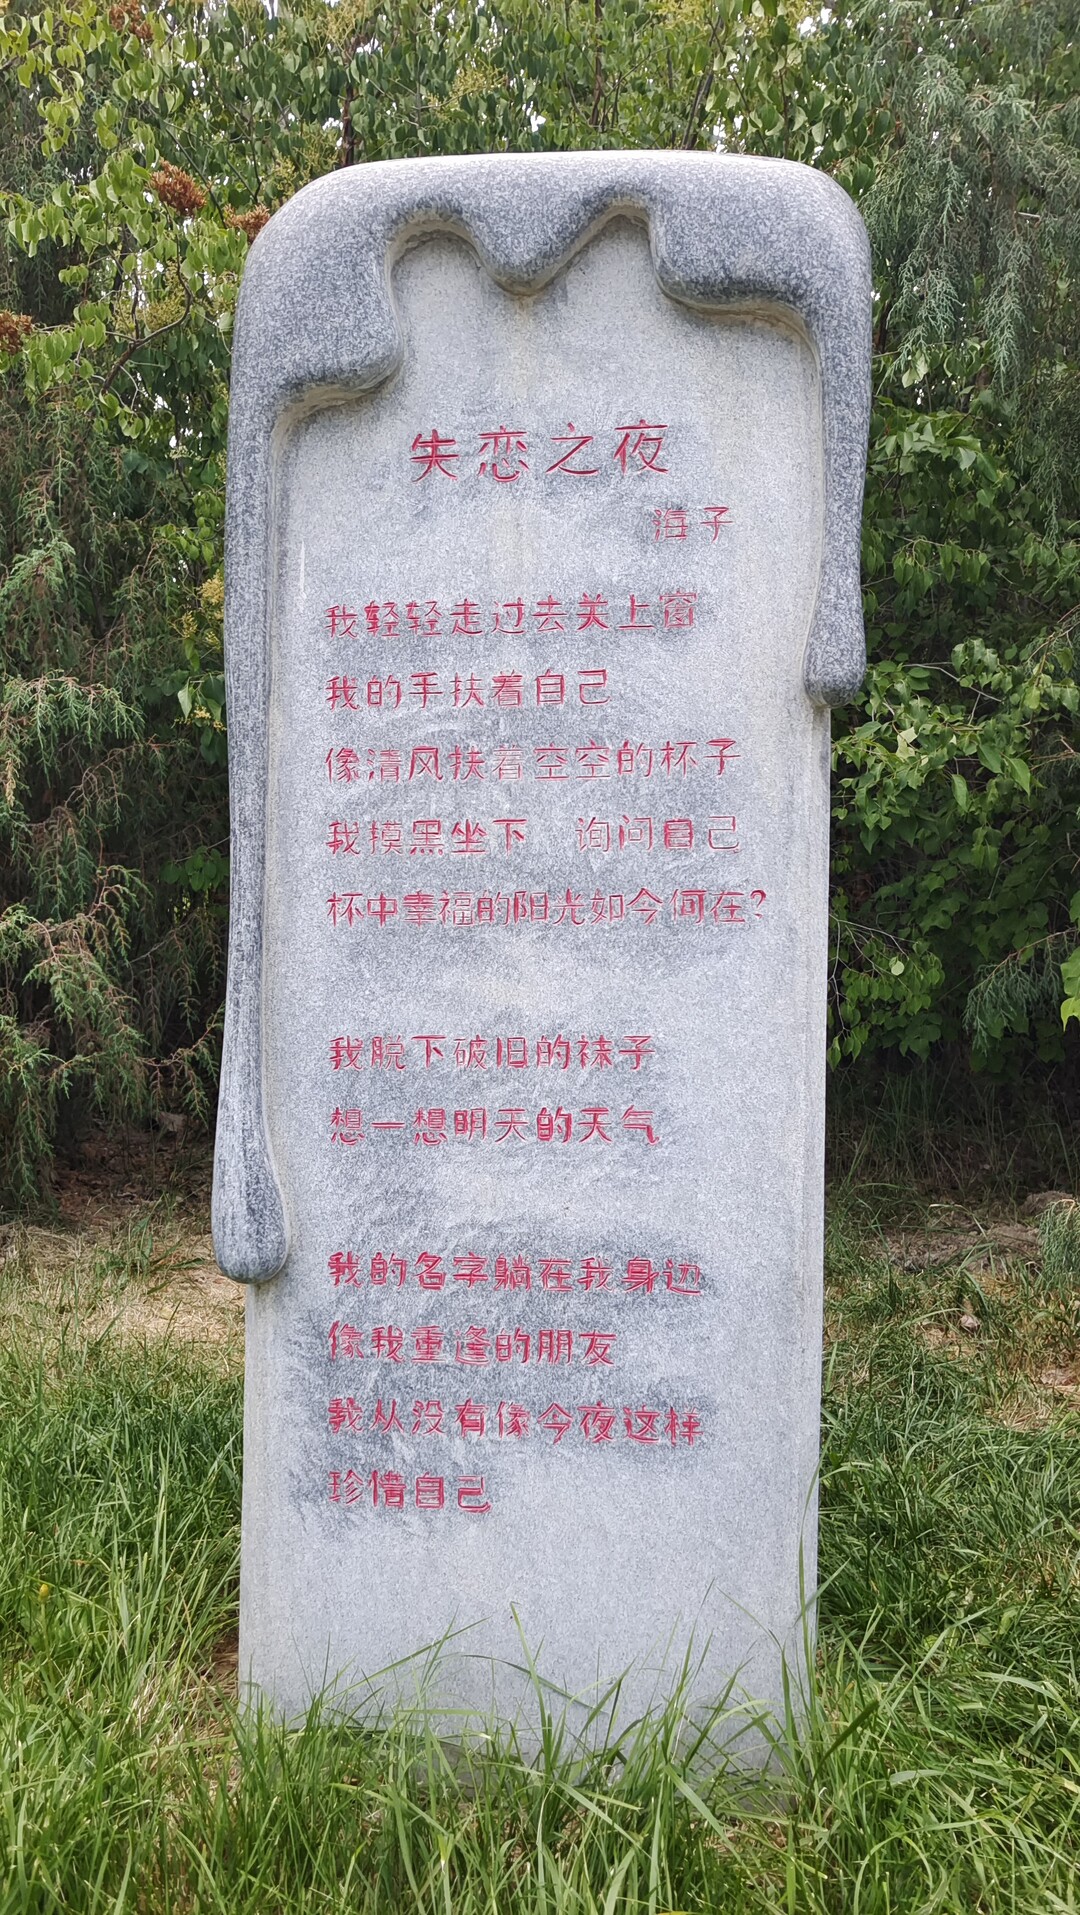 失恋之夜
海子
我轻轻走过去关上窗
我的手扶着自己
像清风扶着空空的杯子
我摸黑坐下 询问自己
杯中幸福的阳光如今何在?
我脱下破旧的袜子
想一想明天的天气
我的名字躺在我身边
像我重逢的朋友
我从没有像今夜这样
珍惜自己